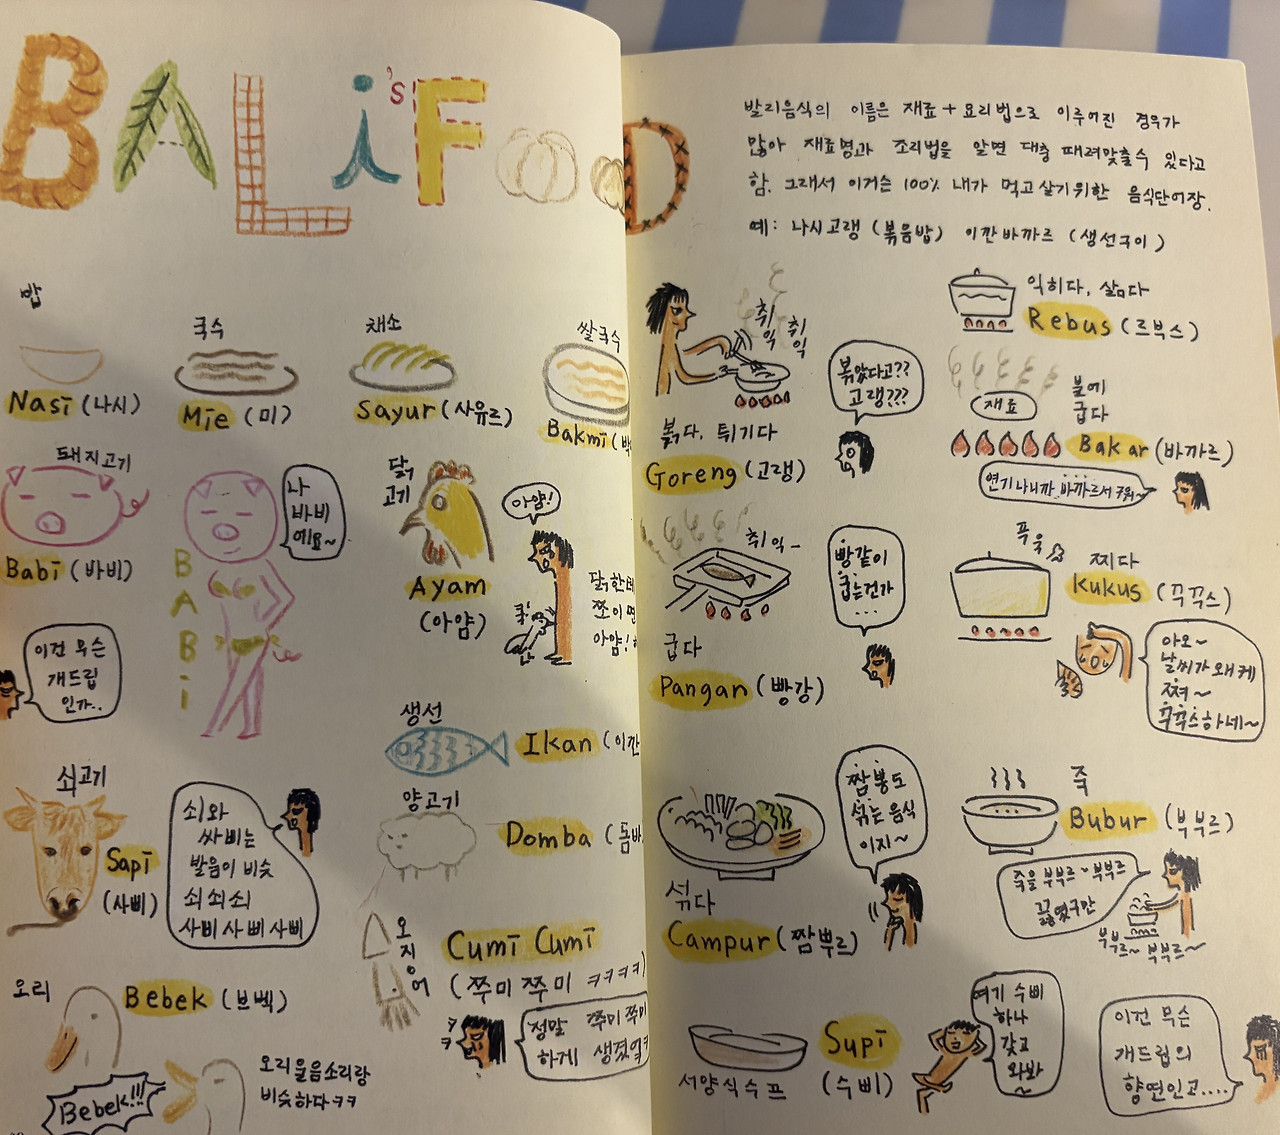 BALi's FOOD
밥
Nasi (나시)
국수
Mie (미)
채소
Sayur (사유르)
쌀국수
Bakmi
돼지고기
Babi (바비)
BABi
나
바비
예요~
이건 무슨
개드립
인가..
닭
고기
Ayam
(아얌)
아얌!
닭한테
쪼이면
아얌!
생선
Ikan (이깐
쇠고기
Sapi
(사삐)
쇠와
싸비는
발음이 비슷
쇠쇠쇠
사삐사삐사삐
양고기
Domba
오징어
Cumi Cumi
(쭈미쭈미 ㅋㅋㅋㅋ)
정말 쭈미쭈미
하게 생겼엌ㅋ
ㅋㅋ
오리
Bebek (브벡)
Bebek!!!
오리울음소리랑
비슷하다ㅋㅋ
발리음식의 이름은 재료+요리법으로 이루어진 경우가
많아 재료명과 조리법을 알면 대충 때려맞출수 있다고
함. 그래서 이거슨 100% 내가 먹고살기위한 음식단어장.
예: 나시고랭 (볶음밥) 이깐바까르 (생선구이)
취익
취익
볶다, 튀기다
Goreng (고랭)
볶았다고??
고랭???
익히다, 삶다
Rebus (르부스)
재료
불에
굽다
Bakar (바까르)
연기나니까 바까르서 구워~
취익-
굽다
Pangan (빵강)
빵같이
굽는건가
...
푸욱
찌다
Kukus (꾹꾹스)
아오~
날씨가 왜케
쪄~
꾹꾹스하네~
섞다
Campur (짬뿌르)
짬뽕도
섞는음식
이지~
죽
Bubur (부부르)
죽을 부부르~부부르
끓였구만
부부르~ 부부르~
서양식수프
Supi
(수삐)
여기 수삐
하나
갖고
와봐
~
이건 무슨
개드립의
향연인고....